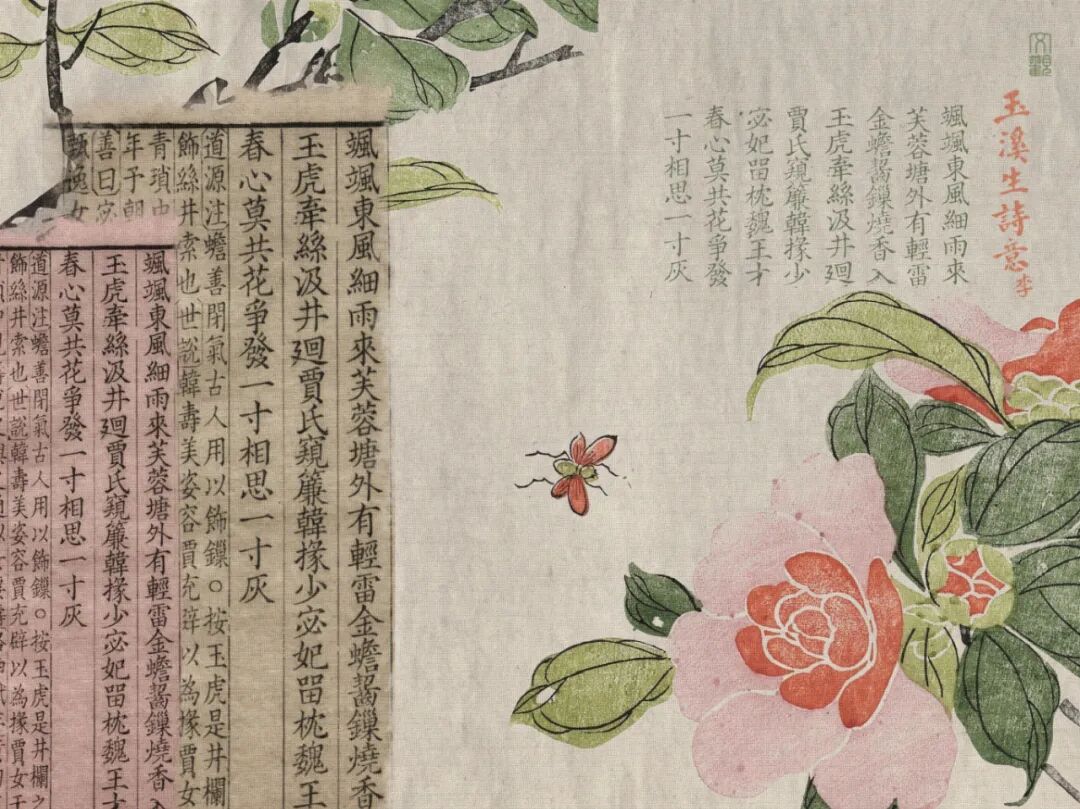 玉溪生詩意 李
颯颯東風細雨來
芙蓉塘外有輕雷
金蟾齧鏁燒香入
玉虎牽絲汲井迴
賈氏窺簾韓掾少
宓妃㽞枕魏王才
春心莫共花爭發
一寸相思一寸灰
颯颯東風細雨來芙蓉塘外有輕雷金蟾齧鏁燒香
玉虎牽絲汲井迴賈氏窺簾韓掾少宓妃㽞枕魏王
春心莫共花爭發一寸相思一寸灰
道源注蟾善閉氣古人用以飾鏁○按玉虎是井欄
飾絲井索也世說韓壽美姿容賈充辟以為掾賈女
青瑣中
年予朝
善曰宓
逸女
颯颯東風細雨來芙蓉塘外有輕雷金蟾齧鏁燒香入
玉虎牽絲汲井迴賈氏窺簾韓掾少宓妃㽞枕魏王才
春心莫共花爭發一寸相思一寸灰
道源注蟾善閉氣古人用以飾鏁○按玉虎是井欄之
飾絲井索也世說韓壽美姿容賈充辟以為掾賈女于